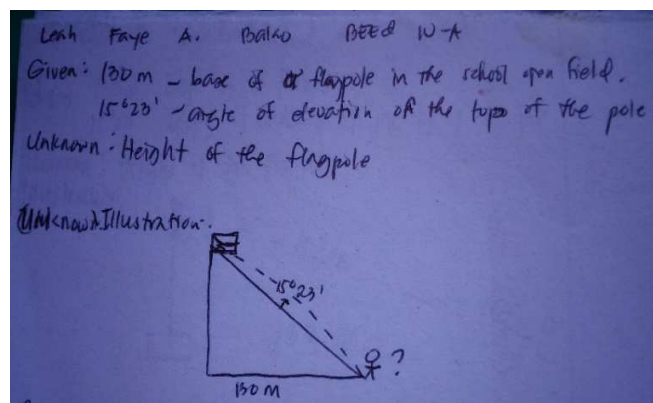 Leah Faye A. Balao BEEd IV-A
Given: 130 m - base of a flagpole in the school open field.
15°23' - angle of elevation of the tops of the pole
Unknown: Height of the flagpole
Illustration:
15°23'
?
130 M